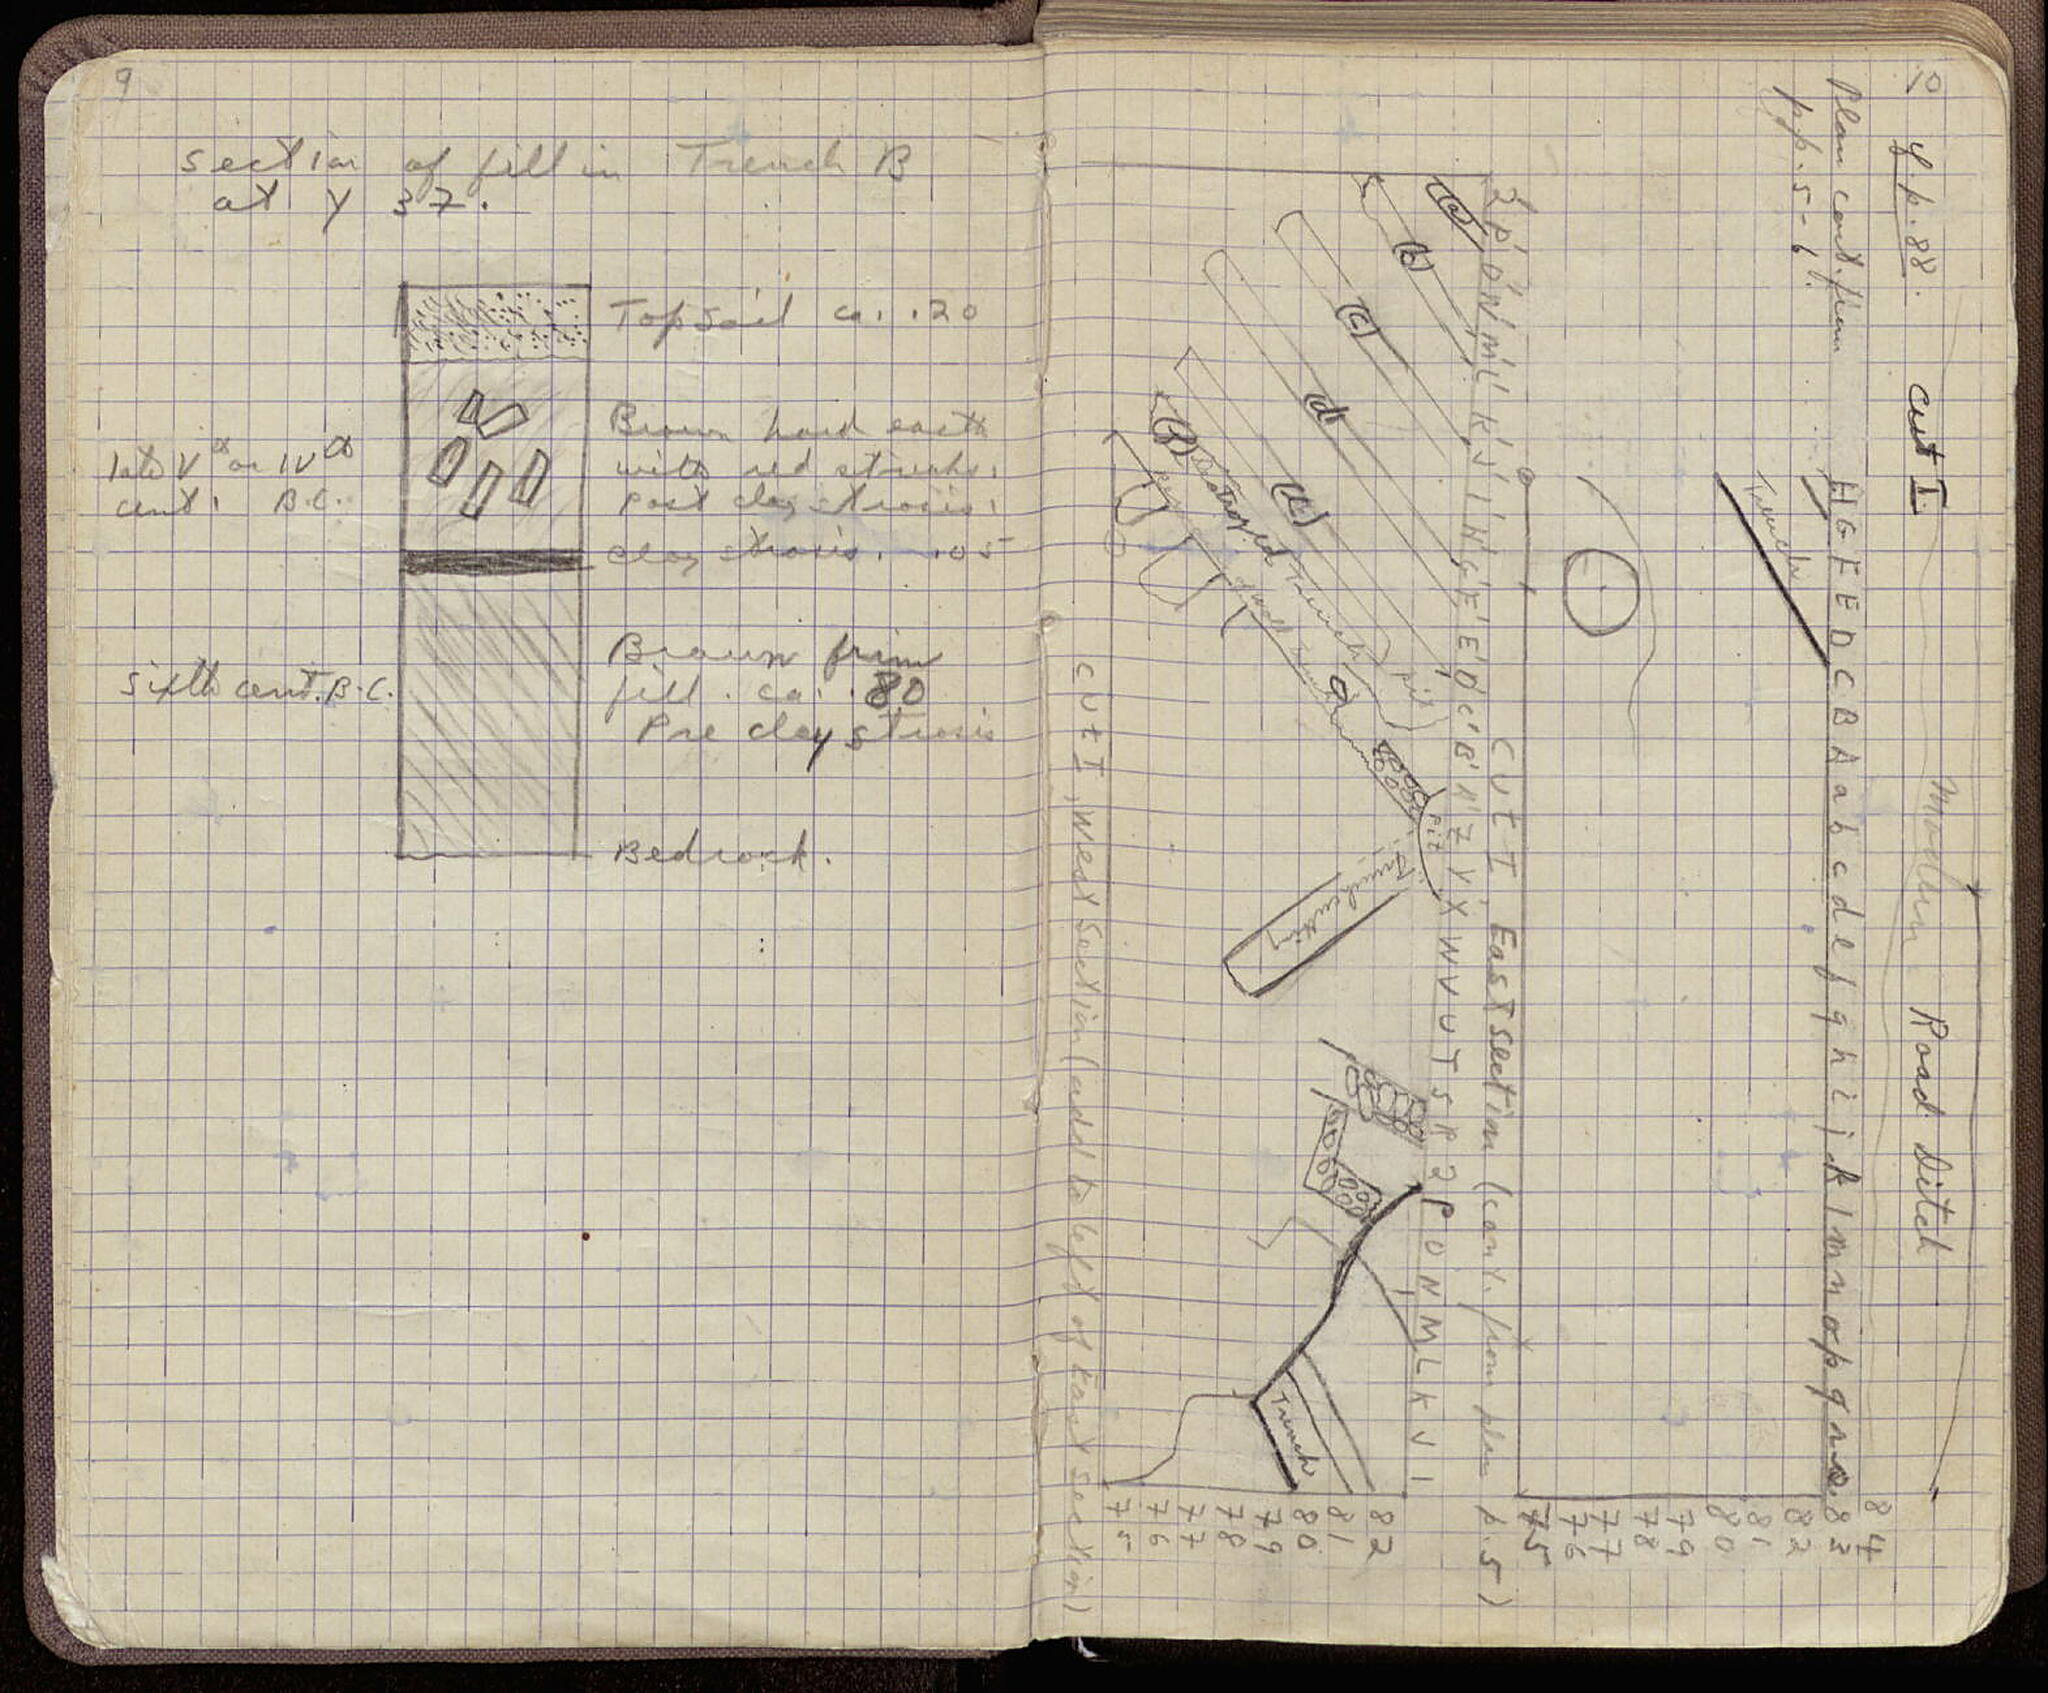 9
section of fill in Trench B
at Y 37.
Topsoil ca. .20
Brown hard earth
with red streaks.
Post clay strosis.
late Vth or IVth
cent. B.C.
clay strosis. .05
Brown firm
fill. ca. .80
Pre clay strosis
sixth cent. B.C.
Bedrock.
10
cf p. 88. Cut I
Modern Road Ditch
Plan cont. from
pp. 5-6.
H G F E D C B A a b c d e f g h i j k l m n o p q r s
84
83
82
81
80
79
78
77
76
75
Trench
CUT I, East Section (cont. from plan p. 5)
P' O' N' M' L' K' J' I' H' G' F' E' D' C' B' A' Z Y X W V U T S R Q P O N M L K J I
(a)
(b)
(c)
(d)
(e)
(f)
Destroyed Trench
pit
pit
pit
Trench cutting
Trench
82
81
80
79
78
77
76
75
CUT I, West Section (add to left of East section)